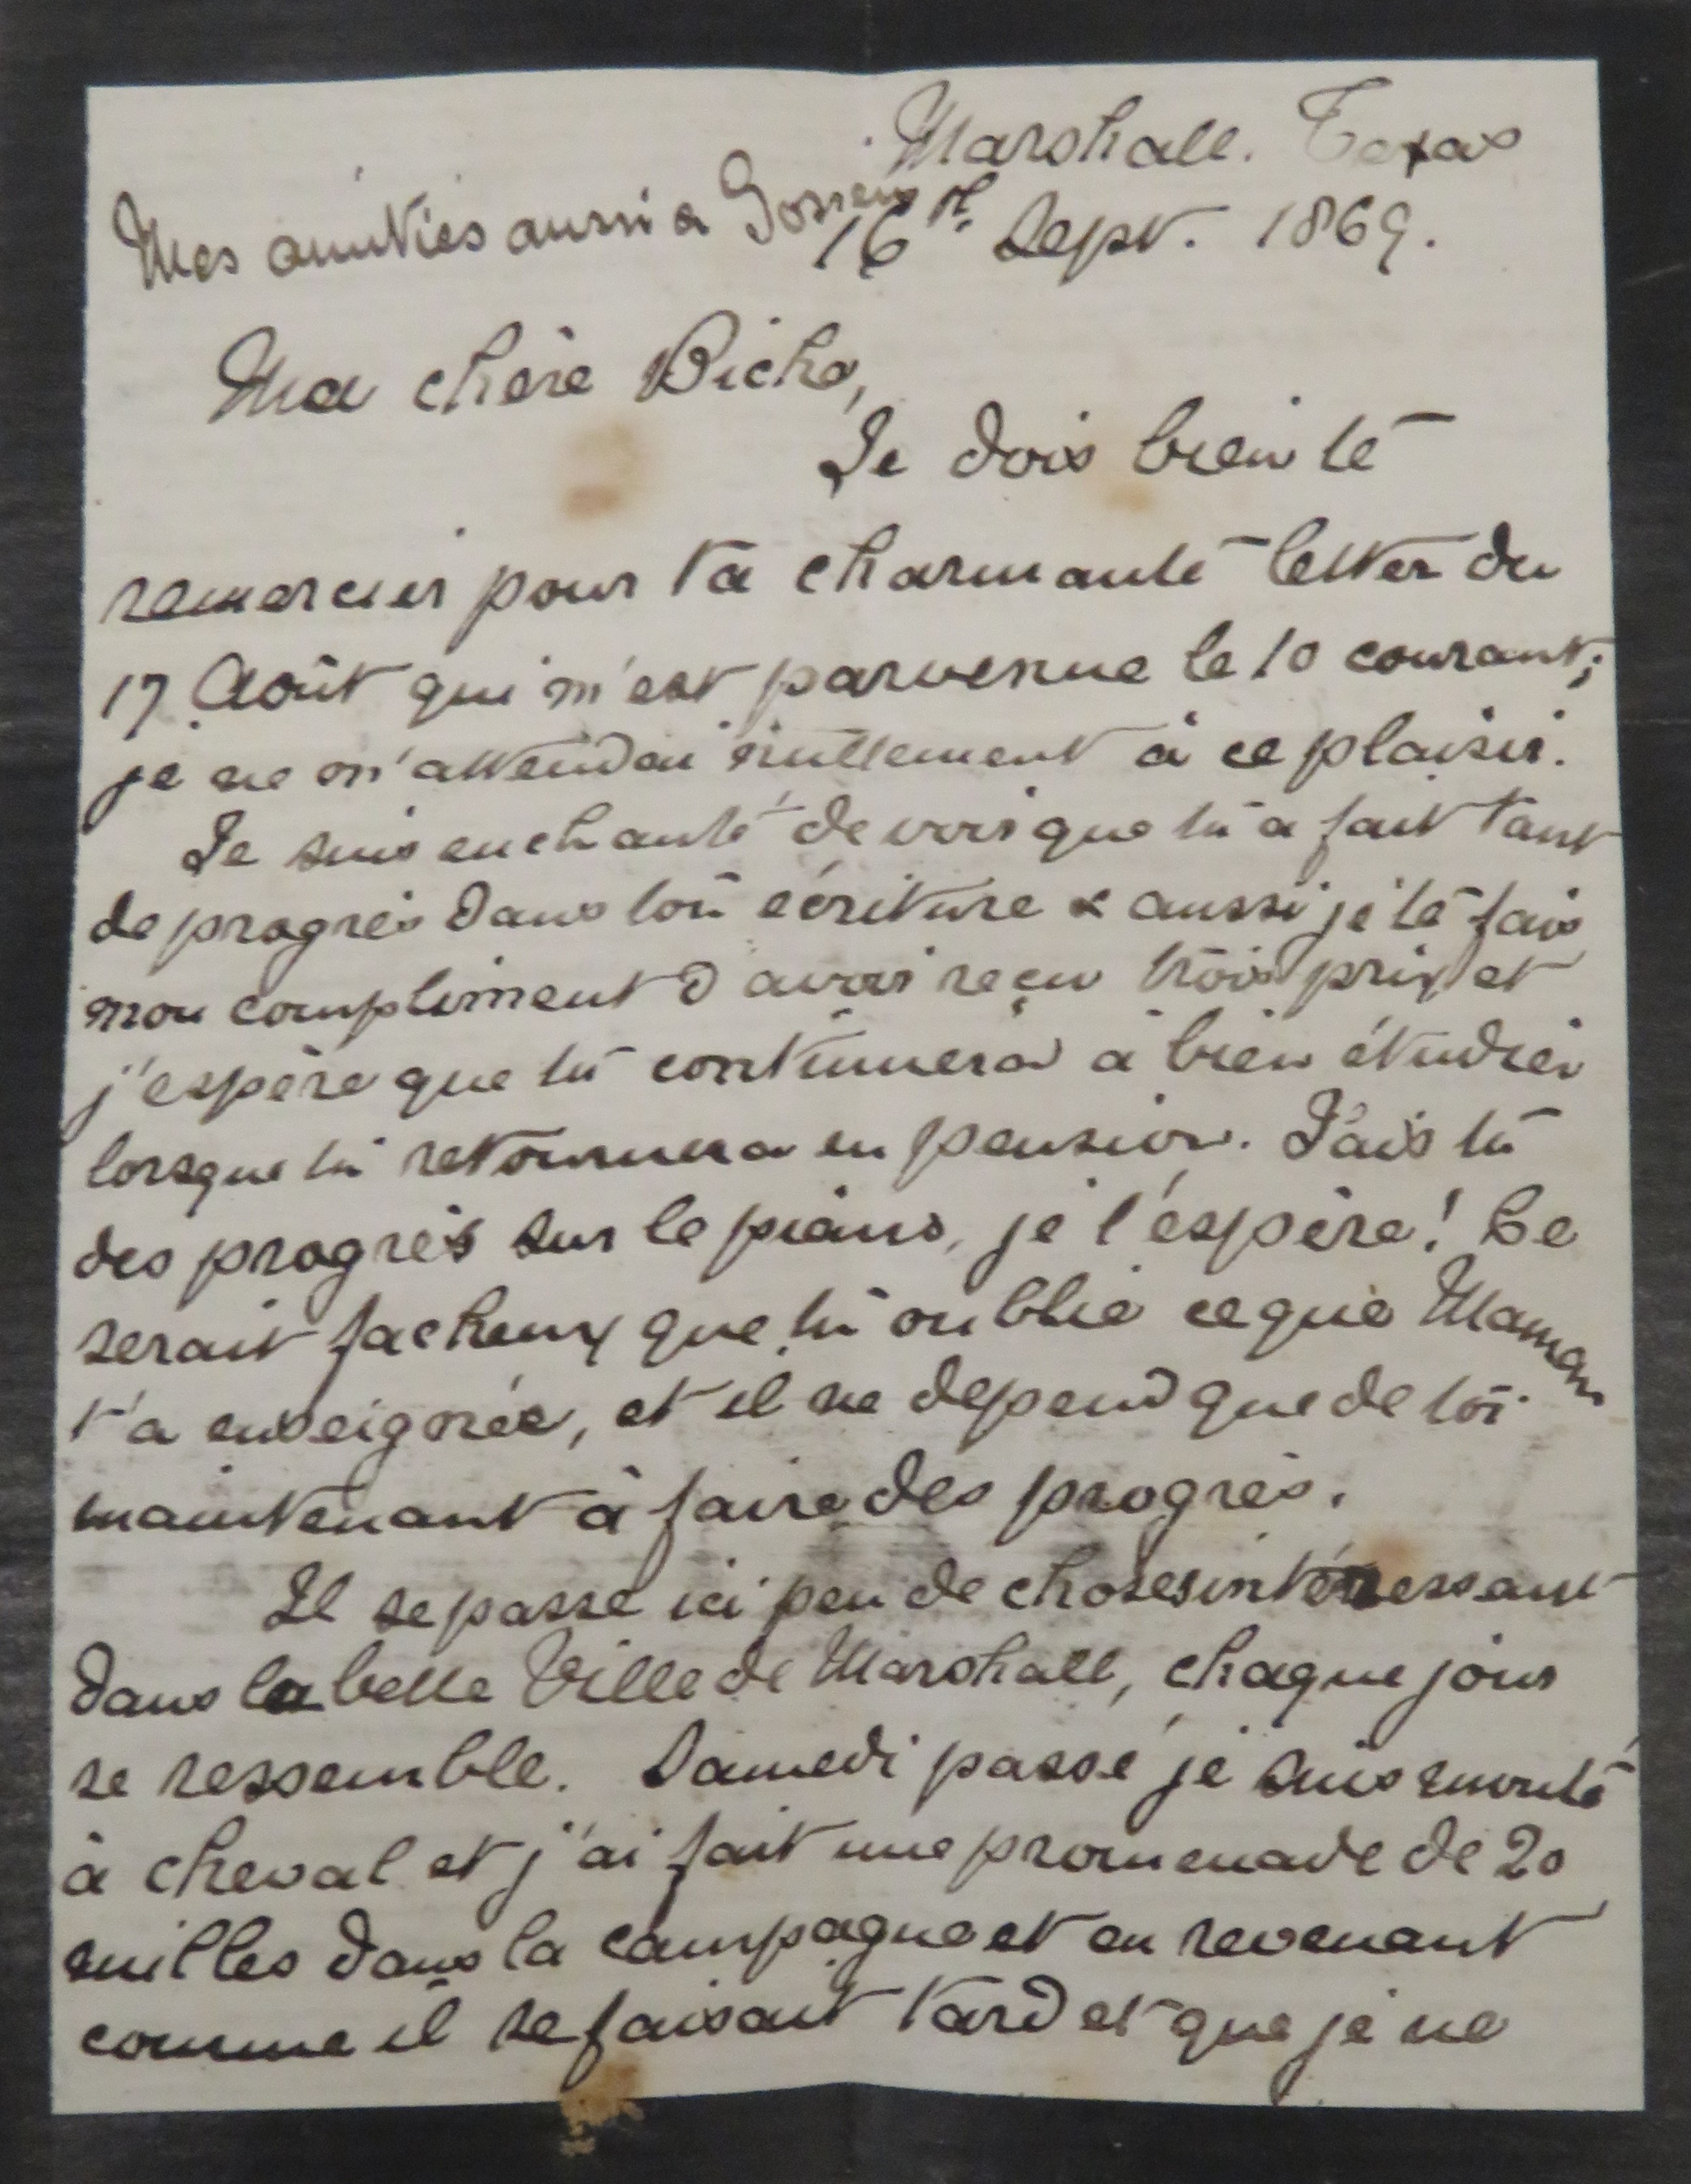 Marshall. Texas
Mes amitiés aussi a
16 Sept. 1869.
Ma chère Biche,
Je dois bien te
remercier pour ta charmante letter du
17 Août qui m'est parvenue le 10 courant;
je ne m'attendai nullement à ce plaisir.
Je suis enchanté de voir que tu a fait tant
de progrès dans ton écriture & aussi je te fais
mon compliment d'avoir reçu trois prix et
j'espère que tu continuera à bien étudier
lorsque tu retournera en pension. Fais tu
des progrès sur le piano, je l'espère! Ce
serait facheux que tu oublie ce que Maman
t'a enseignée, et il ne depend que de toi
maintenant à faire des progrès.
Il se passe ici peu de choses intéressant
dans la belle Ville de Marshall, chaque jour
se ressemble. Samedi passé je suis monté
à cheval et j'ai fait une promenade de 20
milles dans la campagne et en revenant
comme il se faisait tard et que je ne